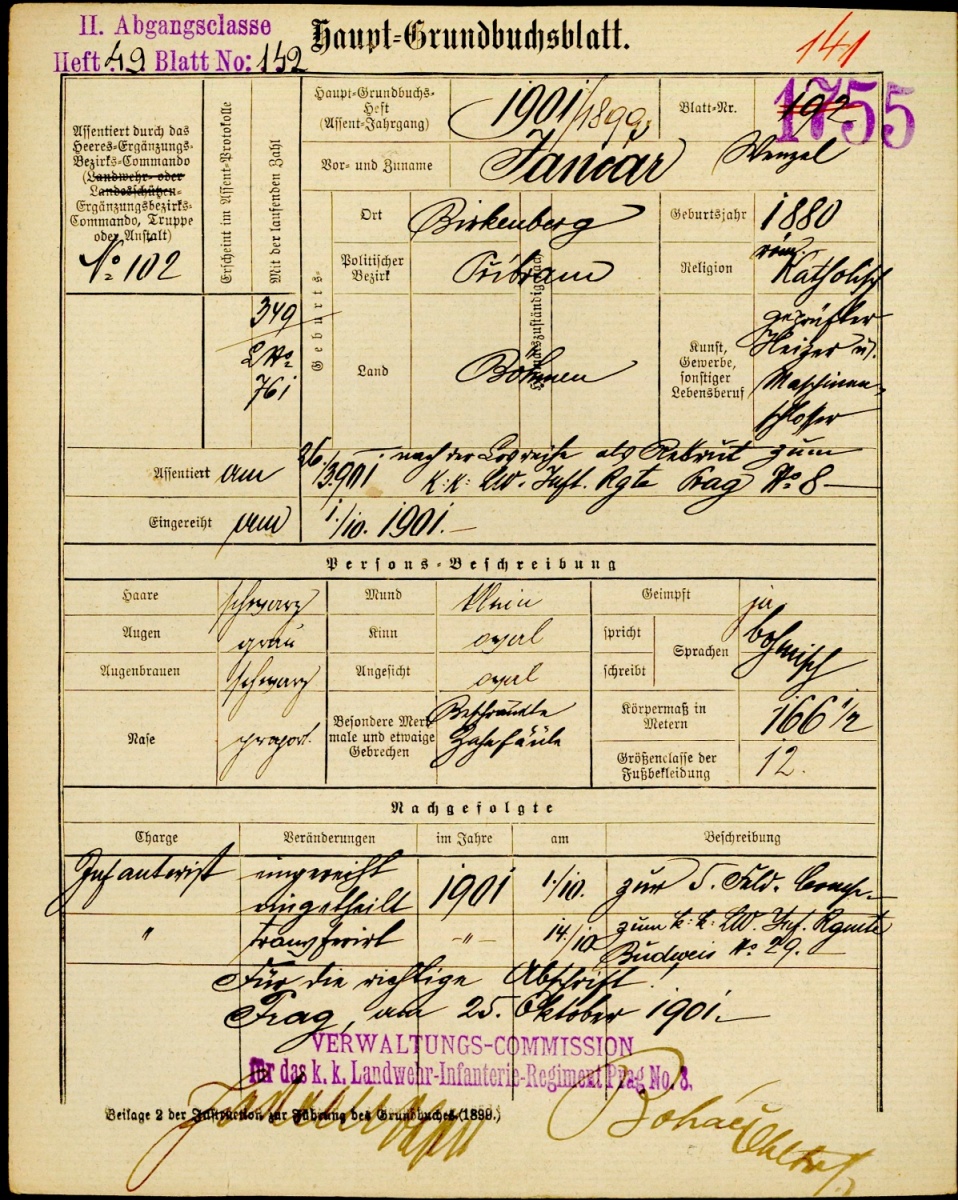 II. Abgangsclasse
Heft 49 Blatt No: 142
Haupt-Grundbuchsblatt.
141
Assentiert durch das
Heeres-Ergänzungs-
Bezirks-Commando
(Landwehr- oder
Landesschützen-
Ergänzungsbezirks-
Commando, Truppe
oder Anstalt)
No 102
Erscheint im Assent-Protokolle
Mit der laufenden Zahl
349
761
Haupt-Grundbuchs-
Heft
(Assent-Jahrgang)
1901/1899
Blatt-Nr.
192
1755
Vor- und Zuname
Januář Wenzel
Geburts-
Ort
Birkenberg
Geburtsjahr
1880
Politischer
Bezirk
Přibram
Religion
röm.
Katholisch
Land
Böhmen
Kunst,
Gewerbe,
sonstiger
Lebensberuf
geprüfter
Heizer u.
Maschinen-
schlosser
Assentiert am 26/3 901 nach der Losreihe als Rekrut zum
k: k: LW. Inft. Rgte Prag No 8
Eingereiht am 1./10. 1901.
Persons-Beschreibung
Haare
schwarz
Mund
klein
Geimpft
ja
Augen
grau
Kinn
oval
spricht
schreibt
Sprachen
böhmisch
Augenbrauen
schwarz
Angesicht
oval
Nase
proport.
Besondere Merk-
male und etwaige
Gebrechen
Beschränkte
Zahnfäule
Körpermaß in
Metern
166 1/2
Größenclasse der
Fußbekleidung
12.
Nachgefolgte
Charge Veränderungen im Jahre am Beschreibung
Infanterist eingereiht
eingetheilt 1901 1/10. zur 5. Feld. Comp.
" transferirt -"- 14/10 zum k: k: LW. Inf. Rgmte
Budweis No 29.
Für die richtige Abschrift.
Prag, am 25. Oktober 1901.
VERWALTUNGS-COMMISSION
für das k. k. Landwehr-Infanterie-Regiment Prag No. 8.
Beilage 2 der Instruction zur Führung des Grundbuches (1899.)